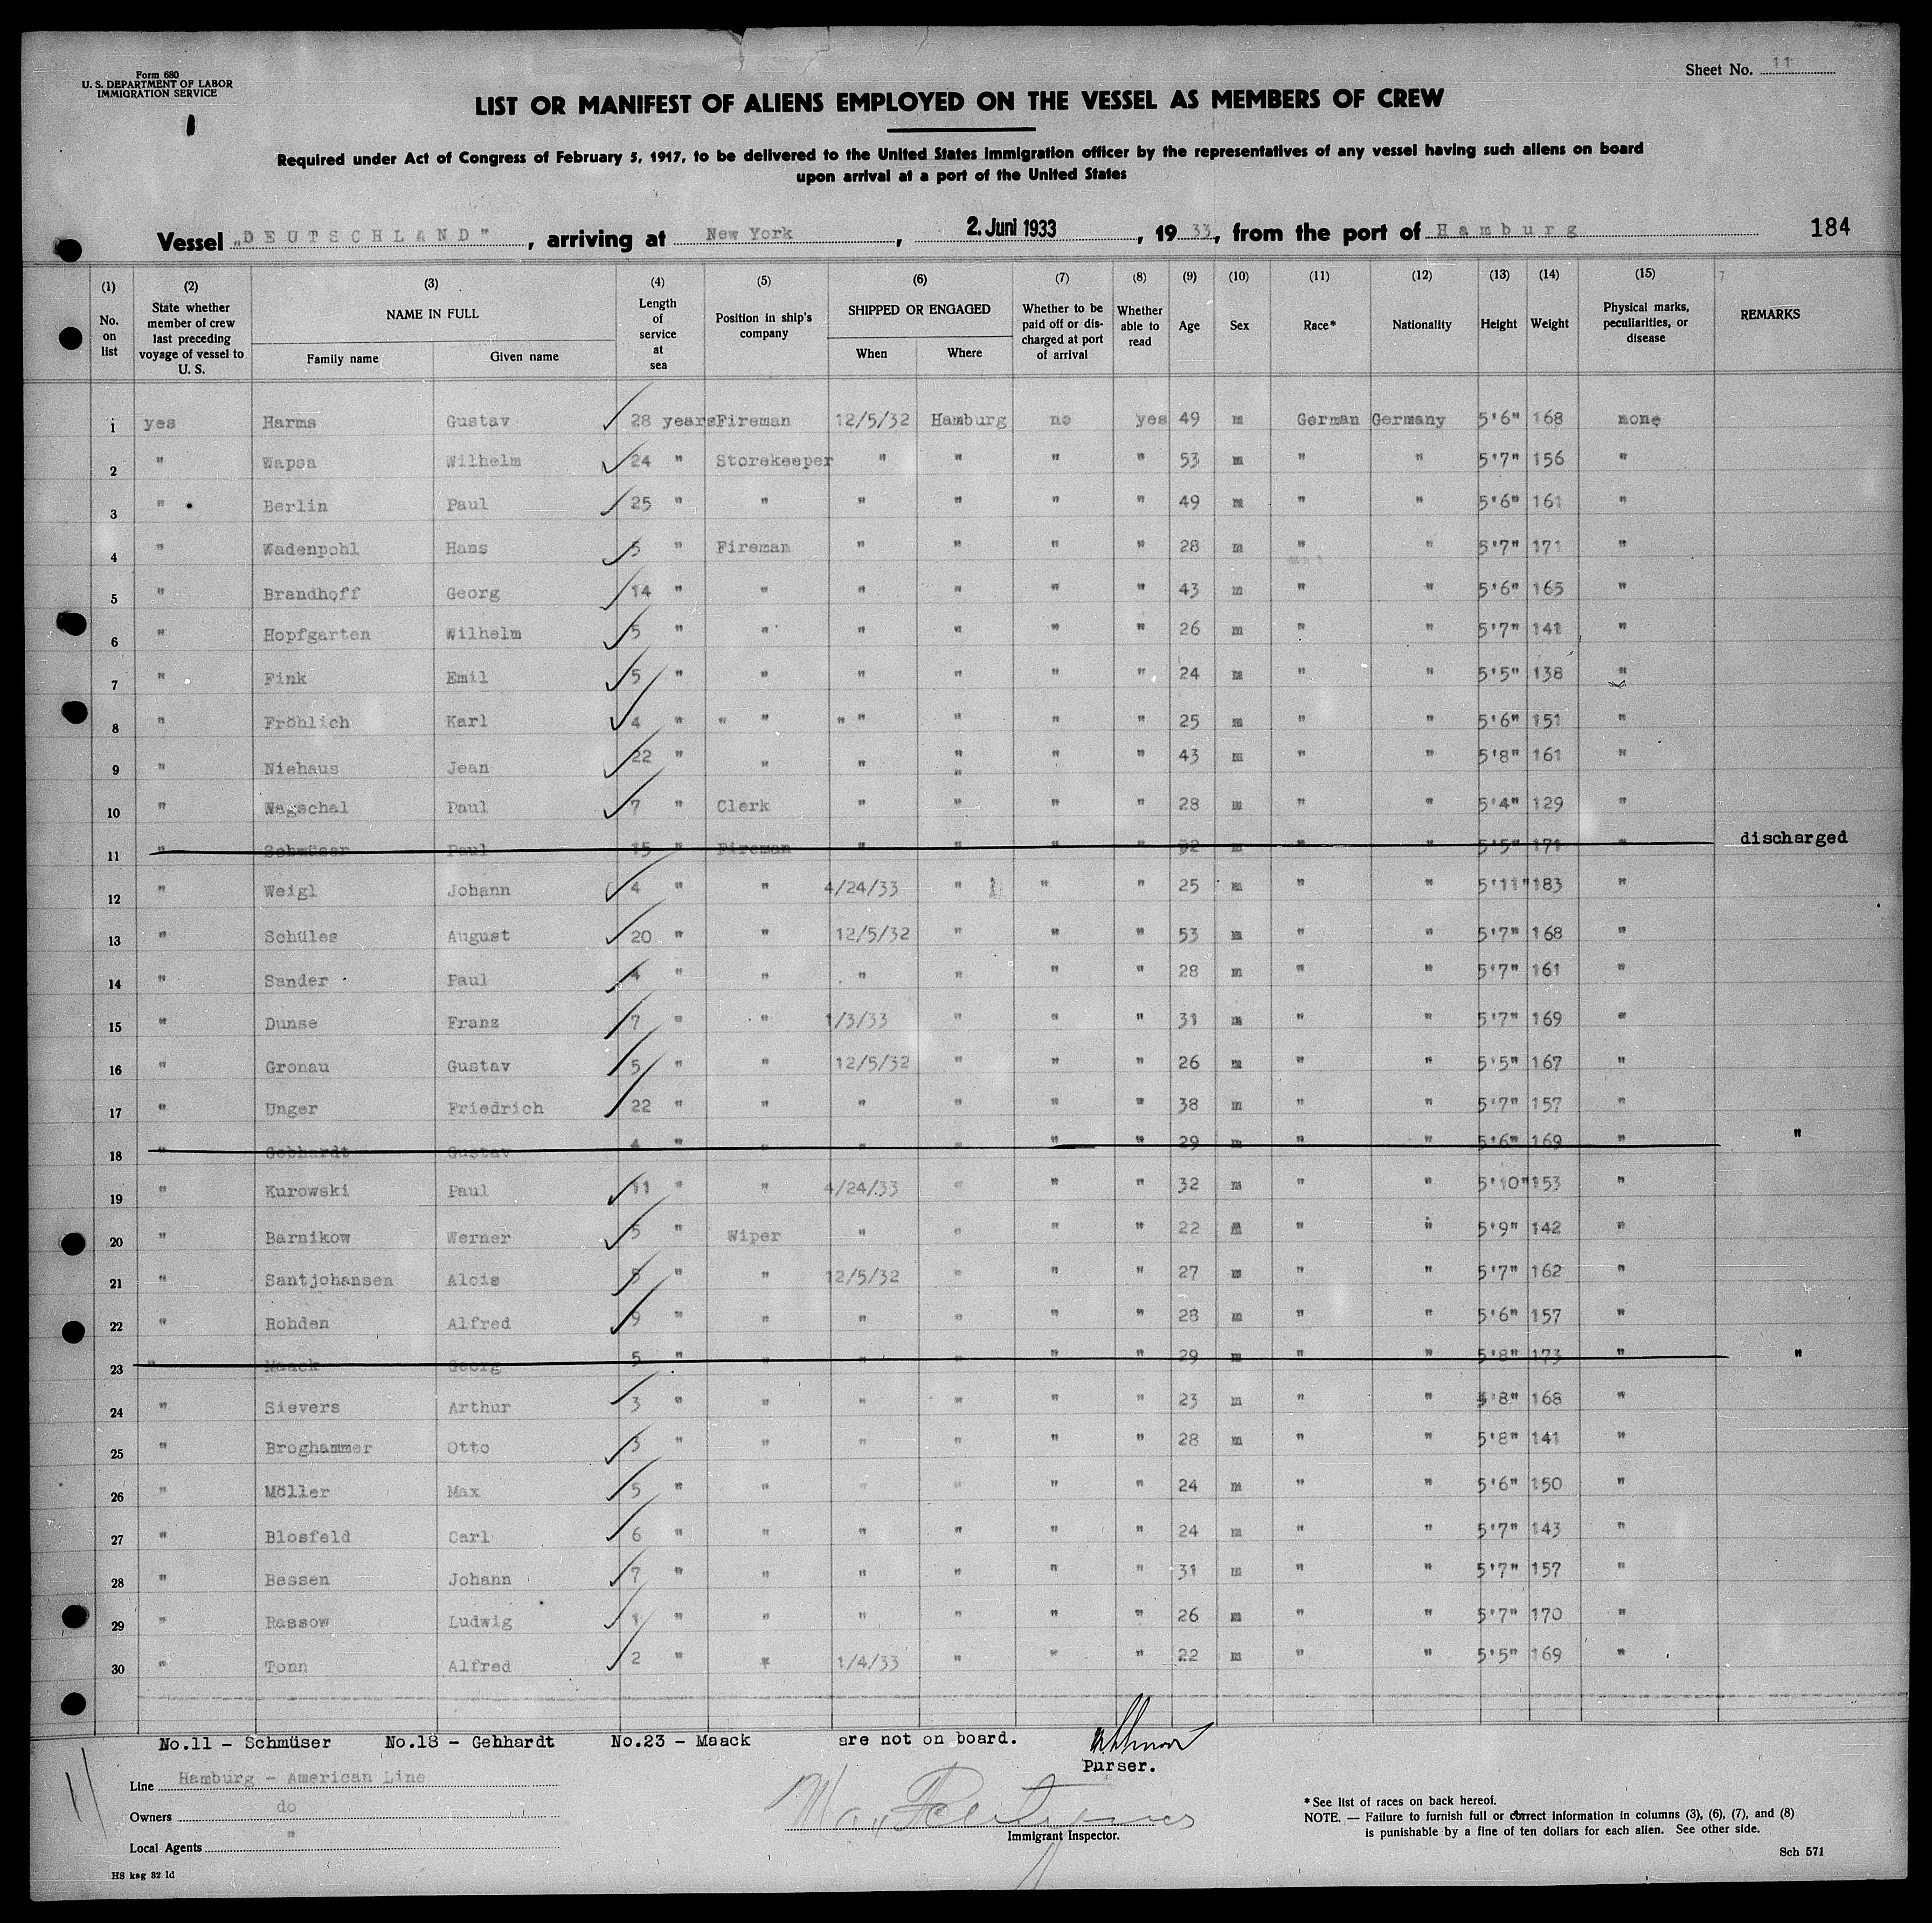 Form 680
U. S. DEPARTMENT OF LABOR
IMMIGRATION SERVICE
Sheet No. 11
LIST OR MANIFEST OF ALIENS EMPLOYED ON THE VESSEL AS MEMBERS OF CREW
Required under Act of Congress of February 5, 1917, to be delivered to the United States immigration officer by the representatives of any vessel having such aliens on board
upon arrival at a port of the United States
Vessel „DEUTSCHLAND", arriving at New York, 2. Juni 1933, 19 33, from the port of Hamburg 184
(1) (2) (3) (4) (5) (6) (7) (8) (9) (10) (11) (12) (13) (14) (15)
No. on list | State whether member of crew last preceding voyage of vessel to U. S. | NAME IN FULL Family name Given name | Length of service at sea | Position in ship's company | SHIPPED OR ENGAGED When Where | Whether to be paid off or discharged at port of arrival | Whether able to read | Age | Sex | Race* | Nationality | Height | Weight | Physical marks, peculiarities, or disease | REMARKS
1 yes Harms Gustav 28 years Fireman 12/5/32 Hamburg no yes 49 m German Germany 5'6" 168 none
2 " Wapsa Wilhelm 24 " Storekeeper " " " " 53 m " " 5'7" 156 "
3 " Berlin Paul 25 " " " " " " 49 m " " 5'6" 161 "
4 " Wadenpohl Hans 5 " Fireman " " " " 28 m " " 5'7" 171 "
5 " Brandhoff Georg 14 " " " " " " 43 m " " 5'6" 165 "
6 " Hopfgarten Wilhelm 5 " " " " " " 26 m " " 5'7" 141 "
7 " Fink Emil 5 " " " " " " 24 m " " 5'5" 138 "
8 " Fröhlich Karl 4 " " " " " " " " 25 m " " 5'6" 151 "
9 " Niehaus Jean 22 " " " " " " " 43 m " " 5'8" 161 "
10 " Wagschal Paul 7 " Clerk " " " " 28 m " " 5'4" 129 "
11 " Schmüser Paul 15 " Fireman " " " " m " " 5'5" 171 " discharged
12 " Weigl Johann 4 " " 4/24/33 " " " 25 m " " 5'11" 183 "
13 " Schüles August 20 " " 12/5/32 " " " 53 m " " 5'7" 168 "
14 " Sander Paul 4 " " " " " " 28 m " " 5'7" 161 "
15 " Dunse Franz 7 " " 1/3/33 " " " 31 m " " 5'7" 169 "
16 " Gronau Gustav 5 " " 12/5/32 " " " 26 m " " 5'5" 167 "
17 " Unger Friedrich 22 " " " " " " 38 m " " 5'7" 157 "
18 " Gebhardt Gustav 4 " " " " " " 29 m " " 5'6" 169 " "
19 " Kurowski Paul 11 " " 4/24/33 " " " 32 m " " 5'10" 153 "
20 " Barnikow Werner 5 " Wiper " " " " 22 m " " 5'9" 142 "
21 " Santjohansen Alois 5 " " 12/5/32 " " " 27 m " " 5'7" 162 "
22 " Rohden Alfred 9 " " " " " " 28 m " " 5'6" 157 "
23 " Maack Georg 5 " " " " " " 29 m " " 5'8" 173 " "
24 " Sievers Arthur 3 " " " " " " 23 m " " 5'8" 168 "
25 " Broghammer Otto 3 " " " " " " 28 m " " 5'8" 141 "
26 " Möller Max 5 " " " " " " 24 m " " 5'6" 150 "
27 " Blosfeld Carl 6 " " " " " " 24 m " " 5'7" 143 "
28 " Bessen Johann 7 " " " " " " 31 m " " 5'7" 157 "
29 " Rassow Ludwig 1 " " " " " " 26 m " " 5'7" 170 "
30 " Tonn Alfred 2 " " 1/4/33 " " " 22 m " " 5'5" 169 "
No.11 - Schmüser No.18 - Gehhardt No.23 - Maack are not on board.
Purser.
11
Line Hamburg - American Line
Owners do
Local Agents "
Immigrant Inspector.
* See list of races on back hereof.
NOTE. — Failure to furnish full or correct information in columns (3), (6), (7), and (8)
is punishable by a fine of ten dollars for each alien. See other side.
Sch 571
HS kag 82 1d